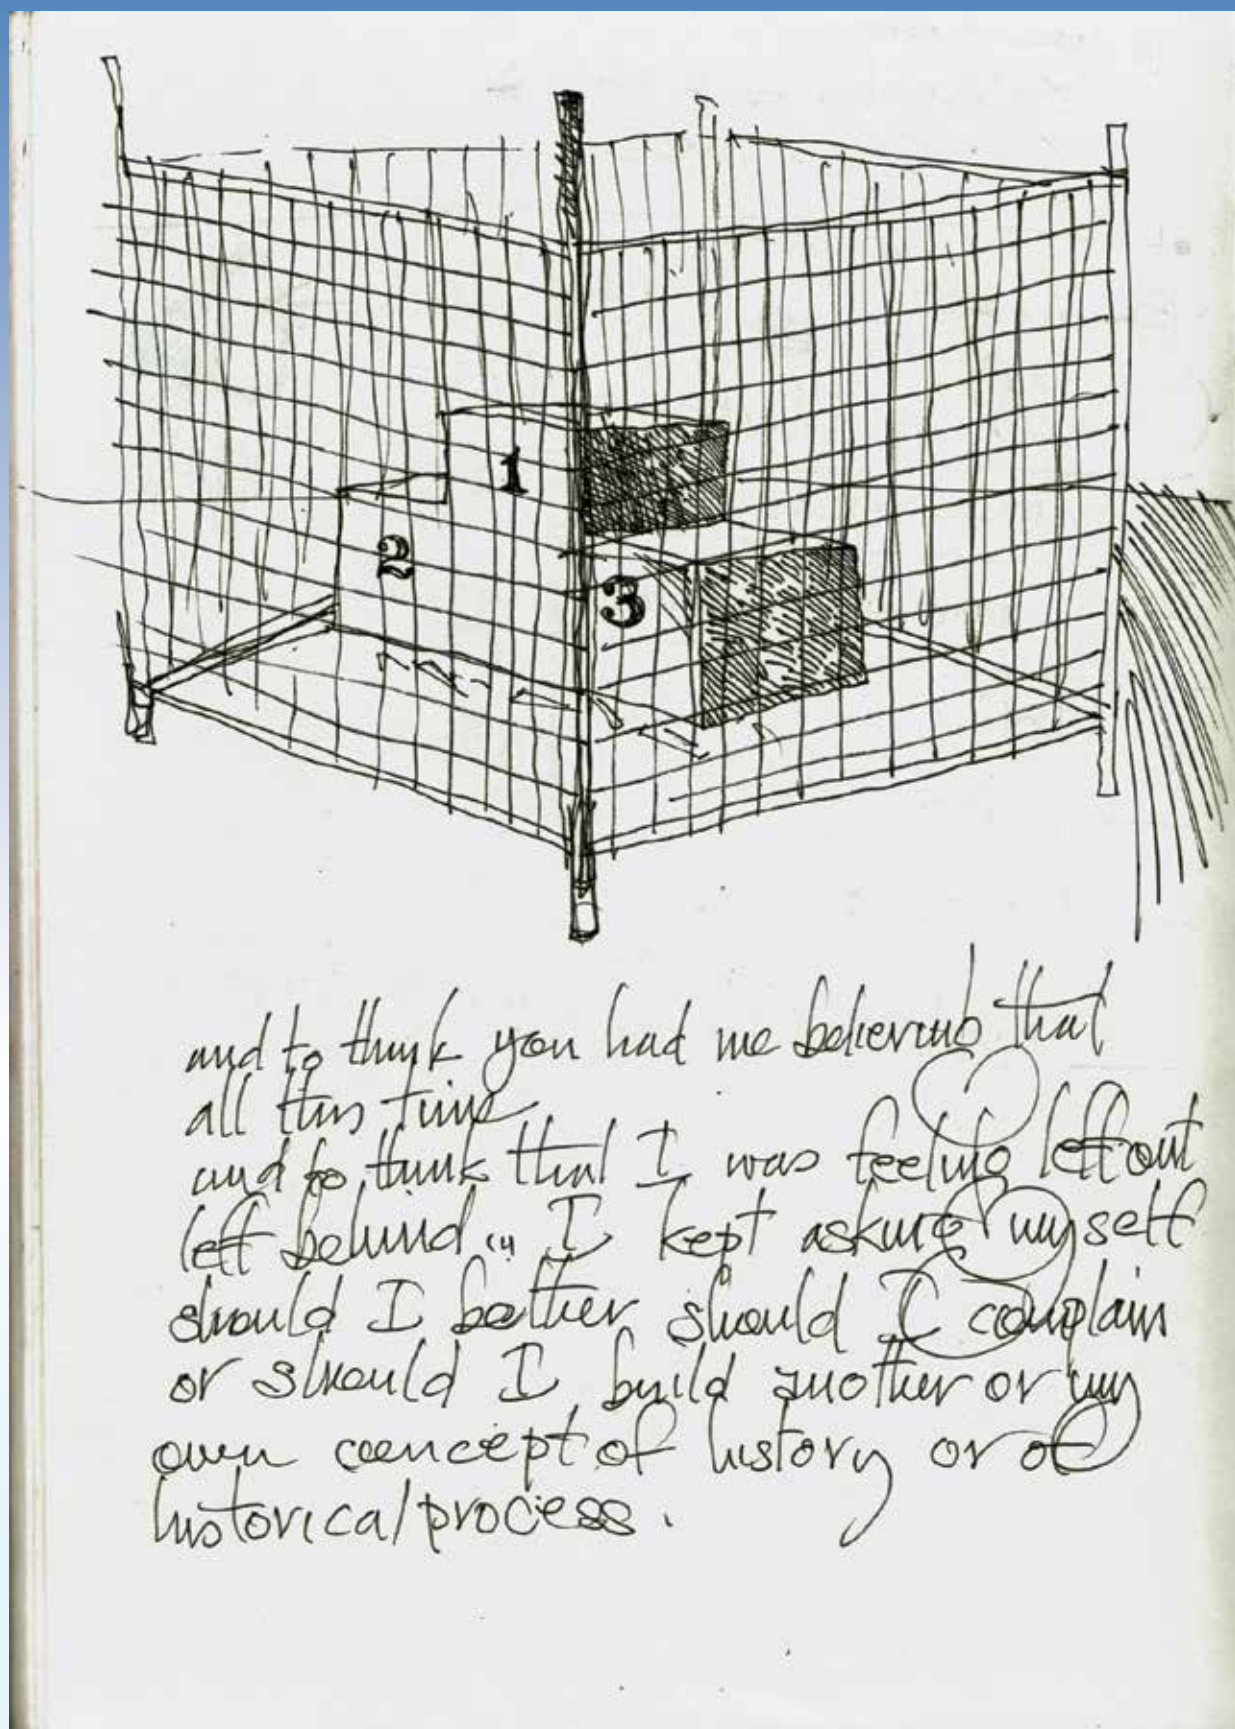 1
2
3
and to think you had me believing that
all this time
and to think that I was feeling left out
left behind... I kept asking myself
should I bother should I complain
or should I build another or my
own concept of history or of
historical process.